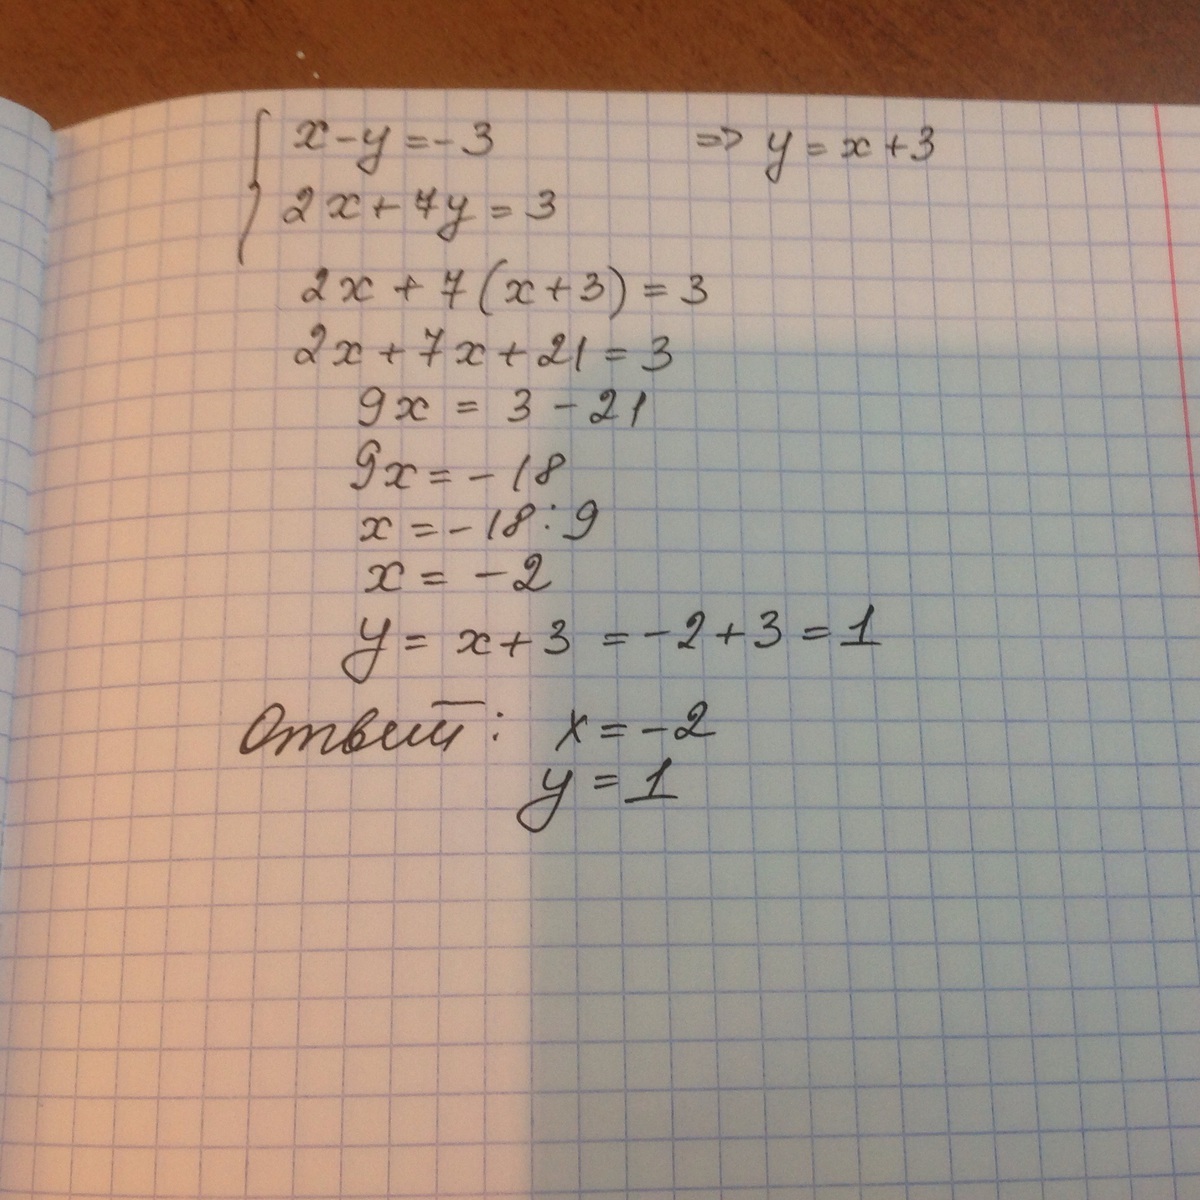 x-y=-3 => y=x+3
2x+7y=3
2x+7(x+3)=3
2x+7x+21=3
9x=3-21
9x=-18
x=-18:9
x=-2
y=x+3=-2+3=1
Ответ: x=-2
y=1